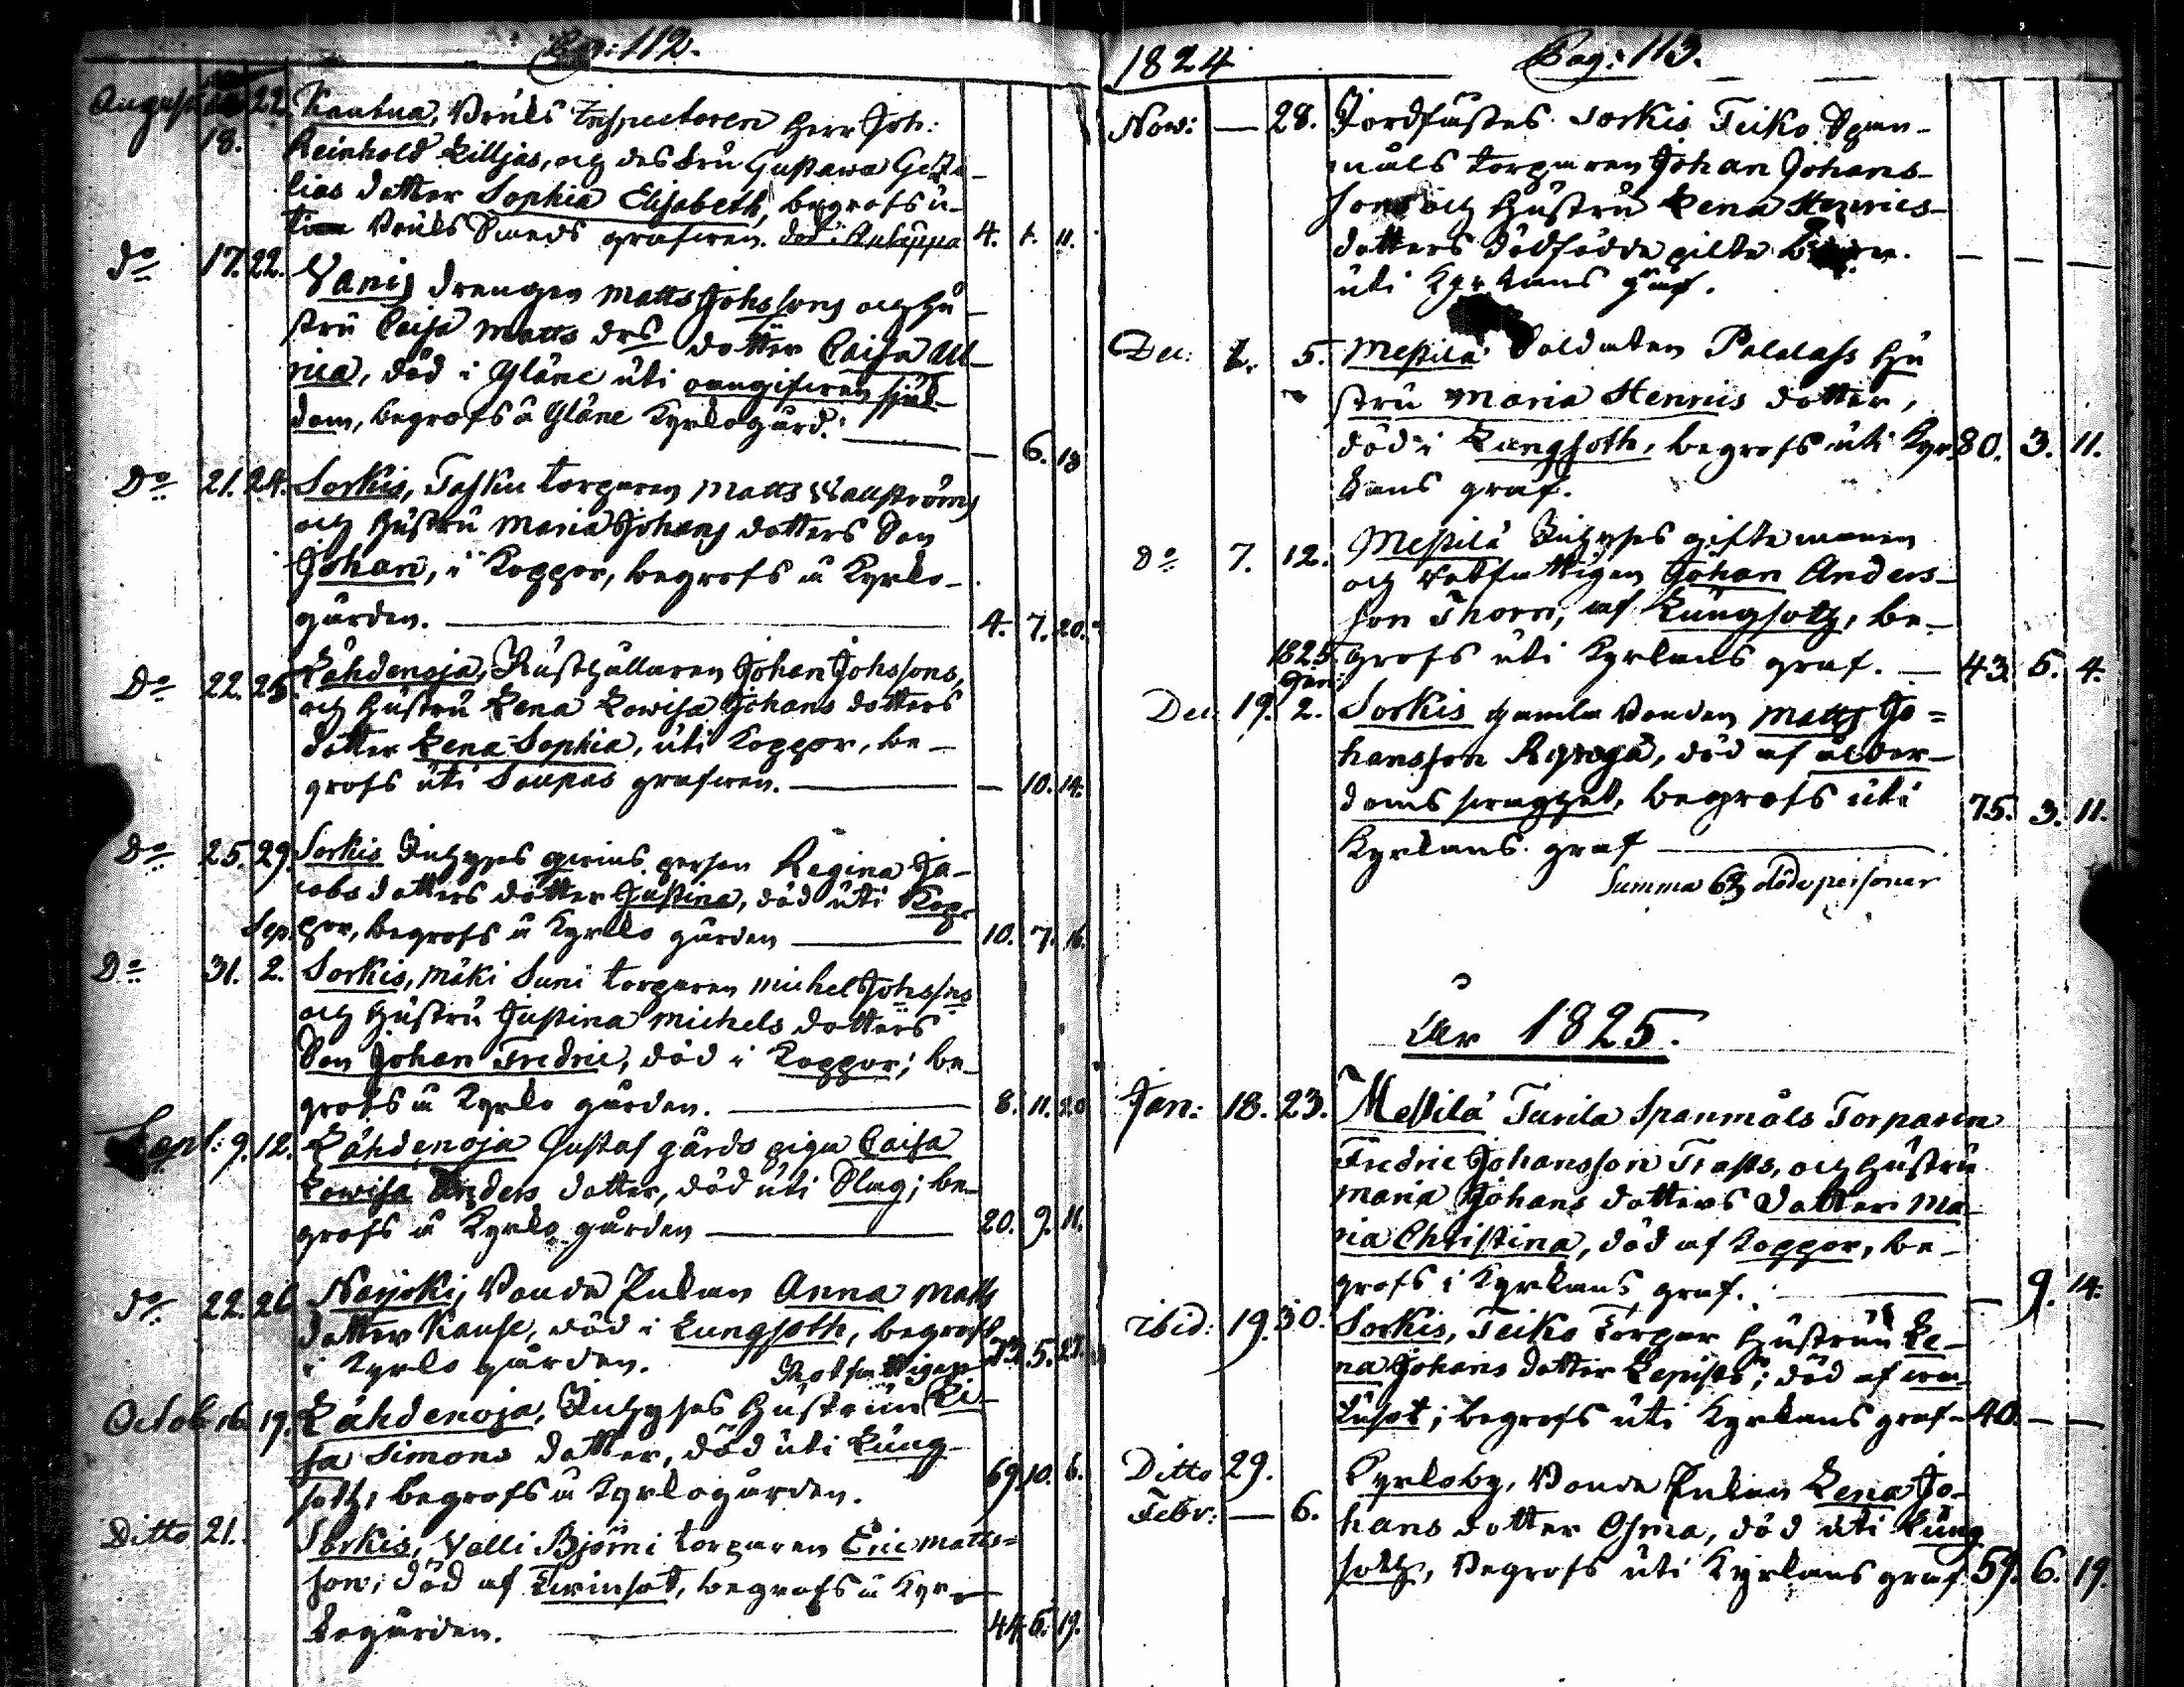 Pag: 112.
August 18. 22. Kautua, Bruks Inspectoren Herr Joh:
Reinhold Lilljas, och des Fru Gustawa
lias dotter Sophia Elisabeth, begrofs u-
Bruks Smeds grafwen. död i 4. 1. 11.
do 17. 22. Vanis drengen Matts Johssons och Hu-
stru Caisa Matts drs dotter Caisa Ul-
rica, död i Yläne uti oangifwen sjuk-
dom, begrofs å Yläne Kyrkogård. — 6. 13
Do 21. 24. Sorkis, Tasku torparen Matts Wallströms
och Hustru Maria Johans dotters Son
Johan, i Koppor, begrofs å Kyrko-
gården. 4. 7. 20.
Do 22. 25 Lähdenoja, Rusthållaren Johan Johssons,
och Hustru Lena Lowisa Johans dotters
dotter Lena Sophia, uti Koppor, be-
grofs uti Saupas grafwen. — 10. 14.
Do 25. 29. Sorkis Inhyses qwins person Regina Ja-
cobs dotters dotter Justina, död uti Kop-
Sep. por, begrofs å Kyrko gården 10. 7. 16.
Do 31. 2. Sorkis, Mäki Suni torparen Michel Johssons
och Hustru Justina Michels dotters
Son Johan Fredric, död i Koppor; be-
grofs å Kyrko gården. 8. 11. 20
Sept: 9. 12. Lähdenoja Gustaf gårds piga Caisa
Lowisa Anders dotter, död uti Slag; be-
grofs å Kyrko gården 20. 9. 11.
do 22. 26 Narjoki, Bonde Enkan Anna Matts
dotter Kause, död i Lungsoth, begrofs
i Kyrko gården. 73. 5. 27.
Rotfattigen
Octob 16. 19. Lähdenoja, Inhyses Hustrun Li-
sa Simons dotter, död uti Lung-
soth, begrofs å Kyrkogården. 69. 10. 6.
Ditto 21. Sorkis, Valli Björni torparen Eric Matts=
son; död af Twinsot, begrofs å Kyr-
kogården. 44. 5. 19.
1824 Pag: 113.
Nov: — 28. Jordfästes Sorkis Teiko Span-
måls torparen Johan Johans-
sons och Hustru Lena Henrics-
dotters dödfödda pilte Barn.
uti Kyrkans graf. — — —
Dec: 1. 5. Messilä Soldaten Palalass Hu
stru Maria Henrics dotter,
död i Langsoth, begrofs uti Kyr- 80. 3. 11.
kans graf.
do 7. 12. Messilä Inhyses gifte mannen
och Rotfattigen Johan Anders-
son Thorn, af Lungsoth, be-
1825 grofs uti Kyrkans graf. — 43. 5. 4.
Jan:
Dec. 19. 2. Sorkis gamla Bonden Matts Jo=
hansson död af ålder-
doms swaghet, begrofs uti 75. 3. 11.
Kyrkans graf
Summa döde personer
År 1825.
Jan: 18. 23. Messilä Turila Spanmåls Torparen
Fredric Johansson Frasts, och Hustru
Maria Johans dotters dotter Ma-
ria Christina, död af Koppor, be-
grofs i Kyrkans graf. — 9. 14.
ibid: 19. 30. Sorkis, Teiko Torpar Hustrun Le-
na Johans dotter död af
begrofs uti Kyrkans graf- 40. — —
Ditto 29. Kyrkoby, Bonde Enkan Lena Jo-
Febr: — 6. hans dotter Osma, död uti Lung
soth, Begrofs uti Kyrkans graf 59. 6. 19.